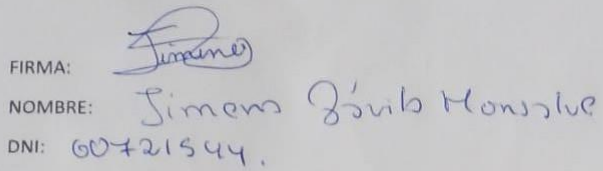 FIRMA: Jimena
NOMBRE: Jimena Dávila Monsalve
DNI: 60721544.